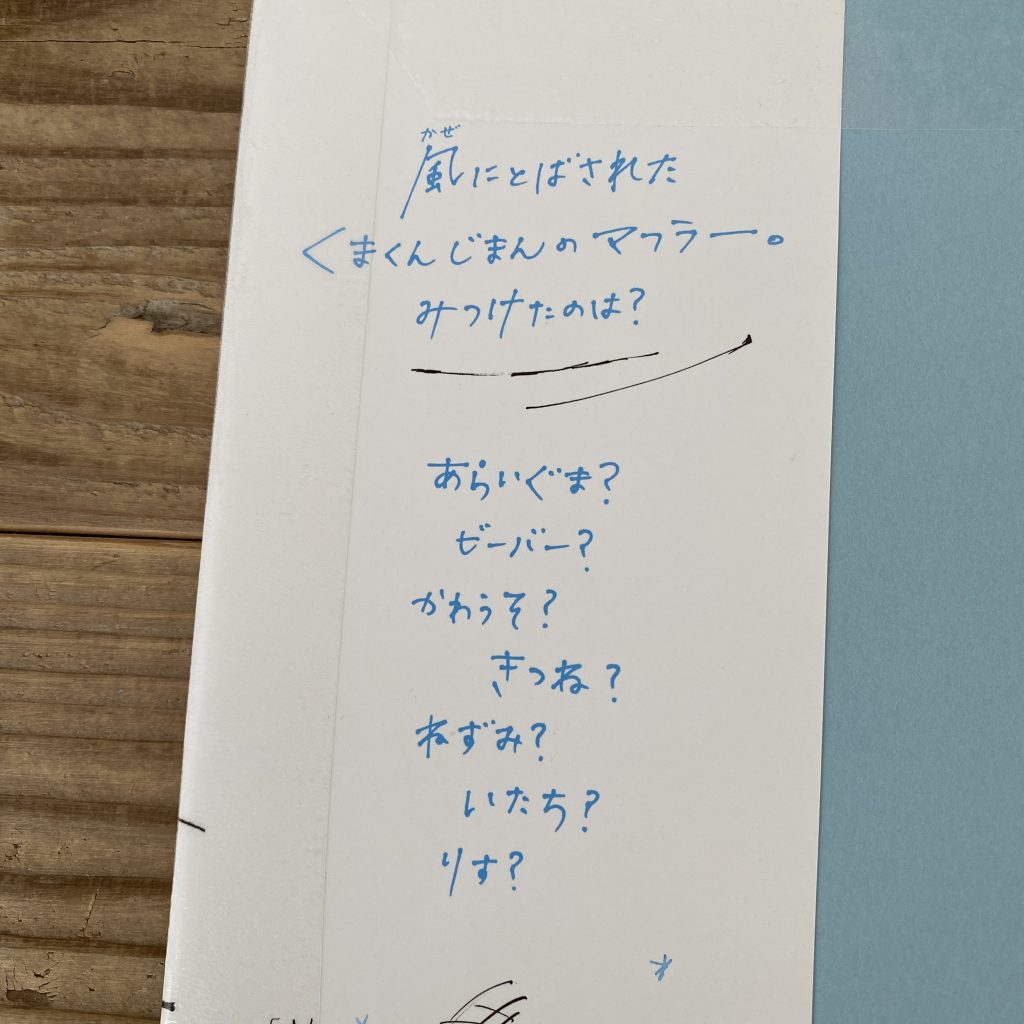 かぜ
嵐にとばされた
くまくんじまんのマフラー。
みつけたのは?
あらいぐま?
ビーバー?
かわうそ?
きつね?
ねずみ?
いたち?
りす?